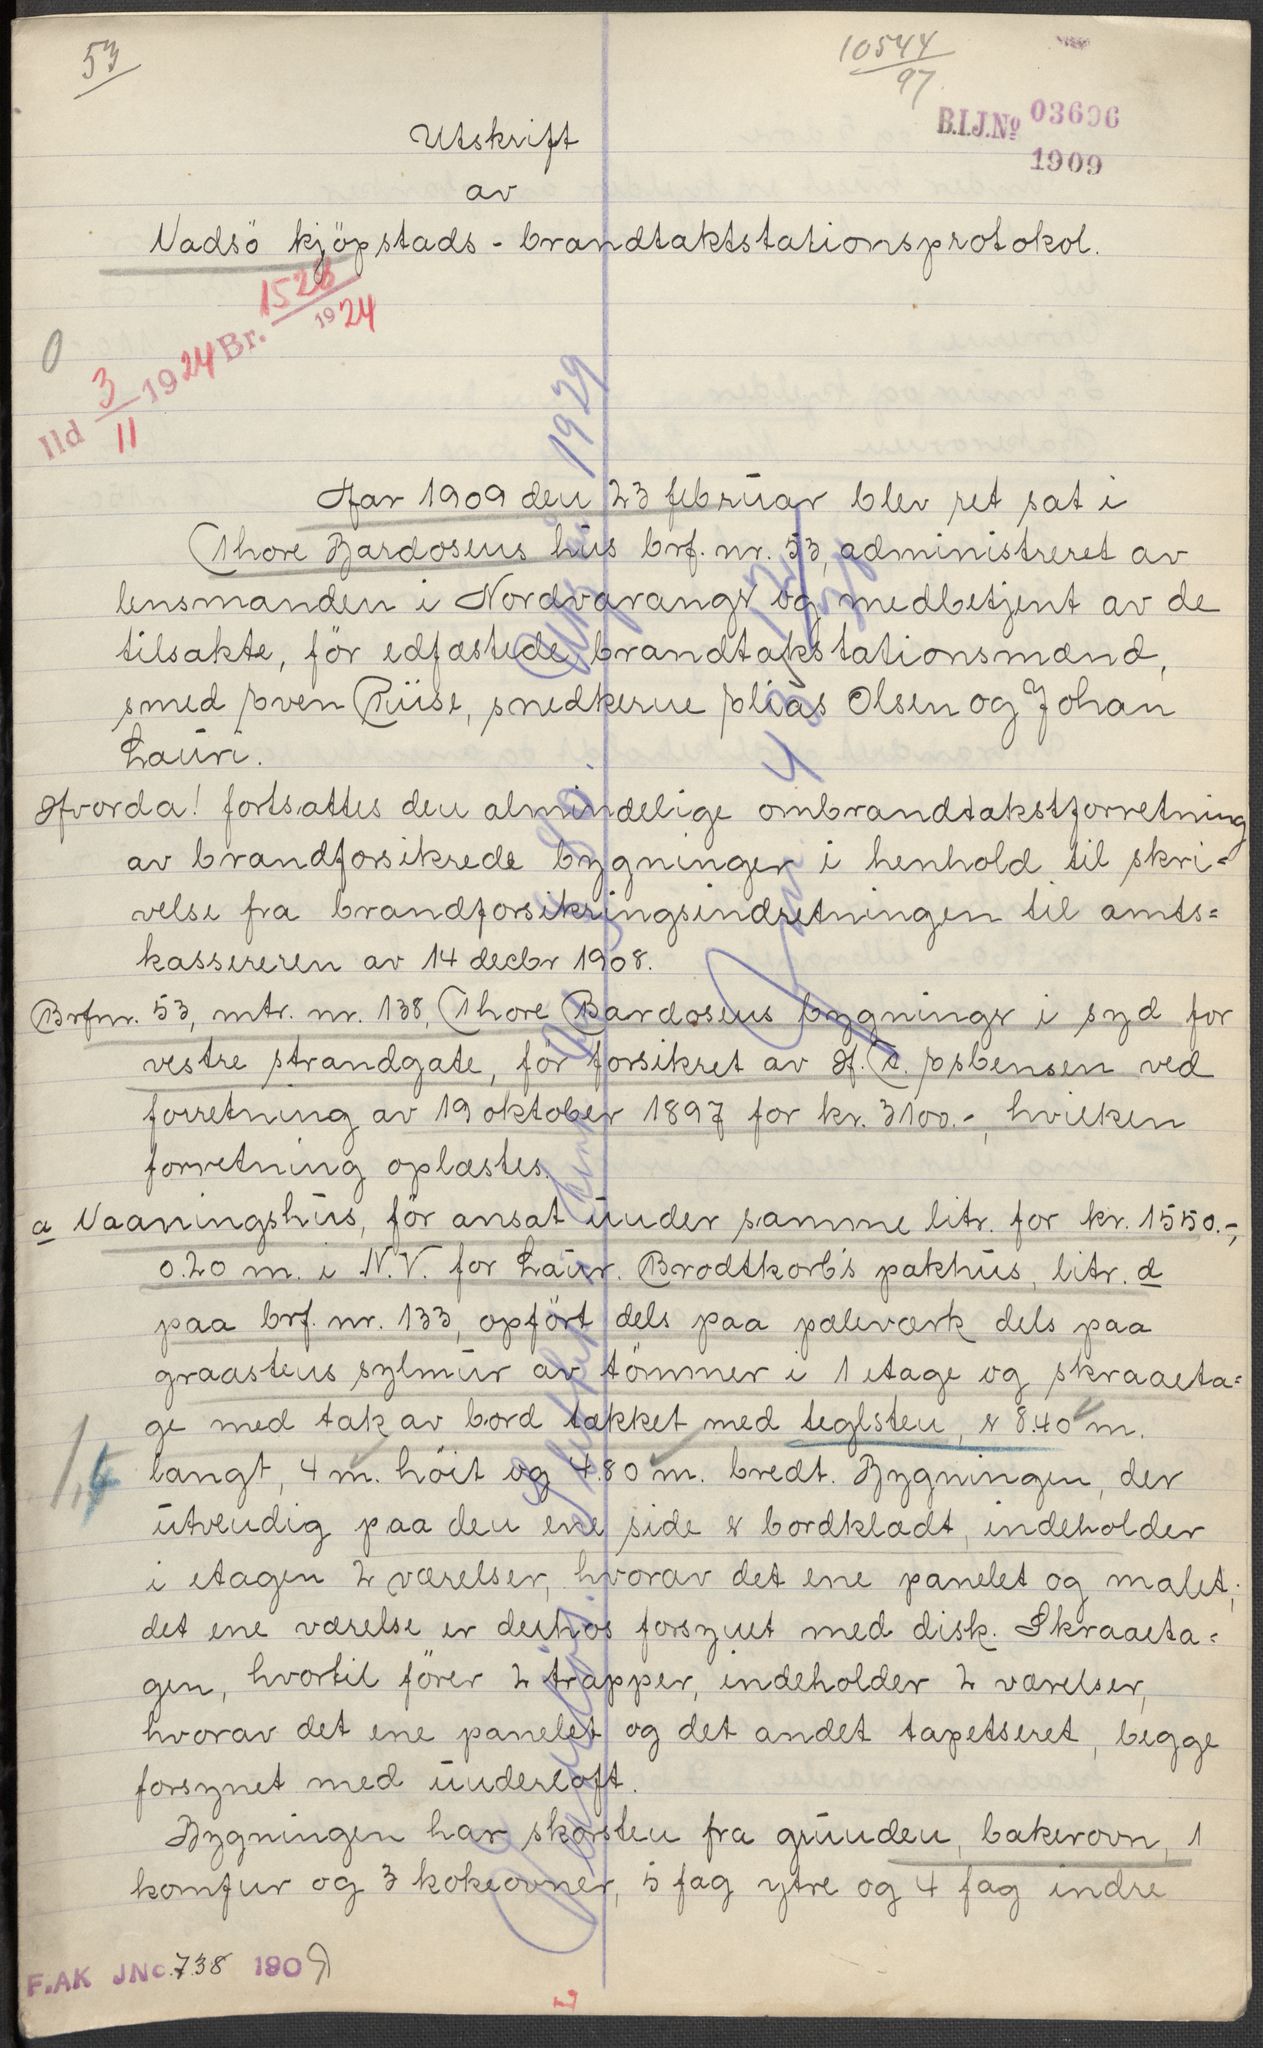 53
10544
97
B.I.J.No 03606
1909
Utskrift
av
Vadsö kjöpstads-brandtakstationsprotokol.
0
Ild 3/11 1924 Br. 1528
1924
Aar 1909 den 23 februar blev ret sat i
Thore Bardosens hus brf. nr. 53, administreret av
lensmanden i Nordvaranger og medbetjent av de
tilsakte, för edfæstede brandtakstationsmænd,
smed Sven Riise, snedkerne Elias Olsen og Johan
Lauri.
Hvorda! fortsattes den almindelige ombrandtakstforretning
av brandforsikrede bygninger i henhold til skri=
velse fra brandforsikringsindretningen til amts=
kassereren av 14 decbr 1908.
Brfnr. 53, mtr. nr. 138, Thore Bardosens bygninger i syd for
vestre strandgate, för forsikret av H. C. Esbensen ved
forretning av 19 oktober 1897 for kr. 3100.-, hvilken
forretning oplæstes.
a Vaaningshus, för ansat under samme litr. for kr. 1550.-,
0.20 m. i N.V. for Laur. Brodtkorb's pakhus, litr. d
paa brf. nr. 133, opfört dels paa pæleværk dels paa
graastens sylmur av tömmer i 1 etage og skraaeta=
ge med tak av bord tækket med teglsten, er 8.40 m.
langt, 4 m. höit og 4.80 m. bredt. Bygningen, der
1,4
utvendig paa den ene side er bordklædt, indeholder
i etagen 2 værelser, hvorav det ene panelet og malet;
det ene værelse er derhos forsynet med disk. Skraaeta=
gen, hvortil förer 2 trapper, indeholder 2 værelser,
hvorav det ene panelet og det andet tapetseret, begge
forsynet med underloft.
Bygningen har skorsten fra grunden, bakerovn, 1
komfur og 3 kokeovner, 5 fag ytre og 4 fag indre
F.AK JNo. 738 1909
1